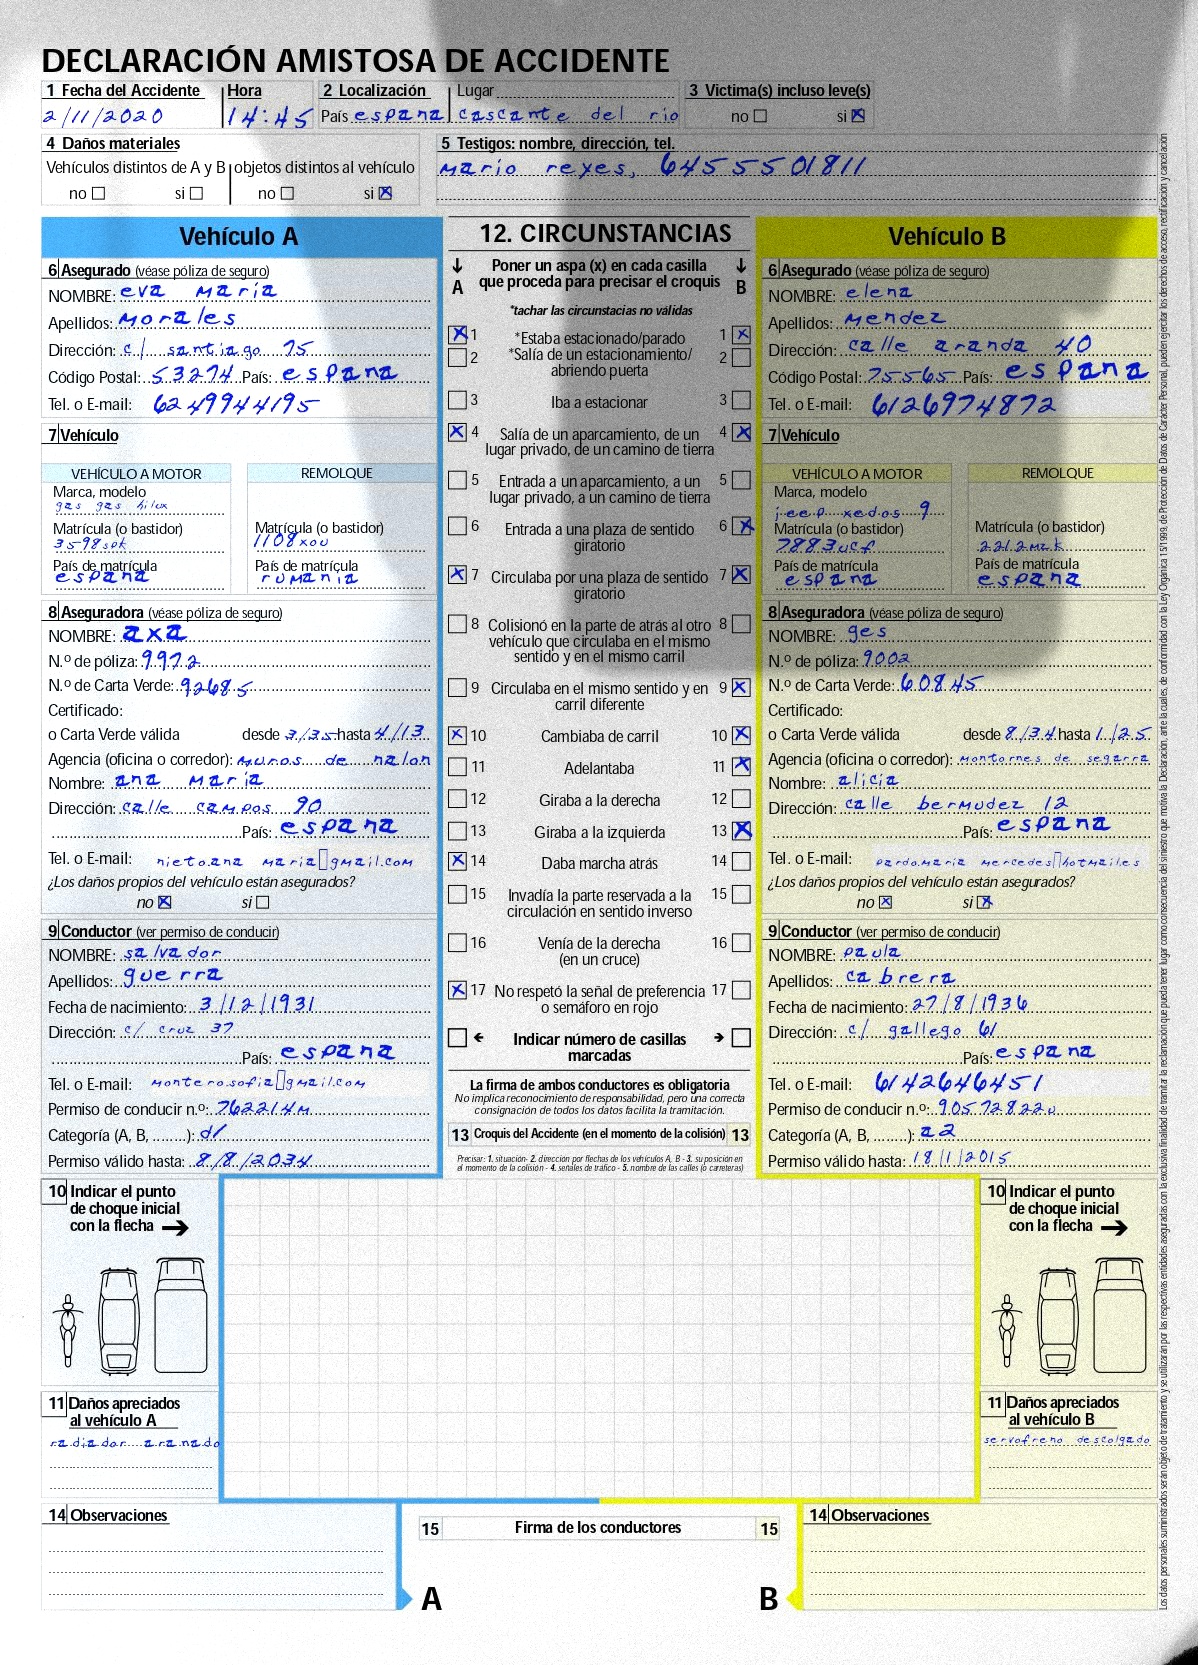 DECLARACIÓN AMISTOSA DE ACCIDENTE
1 Fecha del Accidente Hora 2 Localización Lugar 3 Victima(s) incluso leve(s)
2/11/2020 14:45 País espana cascante del rio no si
4 Daños materiales
Vehículos distintos de A y B objetos distintos al vehículo
no si no si
5 Testigos: nombre, dirección, tel.
mario reyes, 6455501811
Vehículo A
6 Asegurado (véase póliza de seguro)
NOMBRE: eva maria
Apellidos: morales
Dirección: c/ santiago 75
Código Postal: 53274 País: espana
Tel. o E-mail: 6249944195
7 Vehículo
VEHÍCULO A MOTOR REMOLQUE
Marca, modelo
gas gas hilux
Matrícula (o bastidor) Matrícula (o bastidor)
3598spk 1108xou
País de matrícula País de matrícula
espana rumania
8 Aseguradora (véase póliza de seguro)
NOMBRE: axa
N.º de póliza: 9972
N.º de Carta Verde: 92685
Certificado:
o Carta Verde válida desde 3/35 hasta 4/13
Agencia (oficina o corredor): muros de nalon
Nombre: ana maria
Dirección: calle campos 90
País: espana
Tel. o E-mail: nieto.ana maria▯gmail.com
¿Los daños propios del vehículo están asegurados?
no si
9 Conductor (ver permiso de conducir)
NOMBRE: salvador
Apellidos: guerra
Fecha de nacimiento: 3/12/1931
Dirección: c/ cruz 37
País: espana
Tel. o E-mail: montero.sofia▯gmail.com
Permiso de conducir n.º: 762214m
Categoría (A, B, ........): d1
Permiso válido hasta: 8/8/2034
12. CIRCUNSTANCIAS
Poner un aspa (x) en cada casilla
que proceda para precisar el croquis
A B
*tachar las circunstacias no válidas
1 *Estaba estacionado/parado 1
2 *Salía de un estacionamiento/ 2
abriendo puerta
3 Iba a estacionar 3
4 Salía de un aparcamiento, de un 4
lugar privado, de un camino de tierra
5 Entrada a un aparcamiento, a un 5
lugar privado, a un camino de tierra
6 Entrada a una plaza de sentido 6
giratorio
7 Circulaba por una plaza de sentido 7
giratorio
8 Colisionó en la parte de atrás al otro 8
vehículo que circulaba en el mismo
sentido y en el mismo carril
9 Circulaba en el mismo sentido y en 9
carril diferente
10 Cambiaba de carril 10
11 Adelantaba 11
12 Giraba a la derecha 12
13 Giraba a la izquierda 13
14 Daba marcha atrás 14
15 Invadía la parte reservada a la 15
circulación en sentido inverso
16 Venía de la derecha 16
(en un cruce)
17 No respetó la señal de preferencia 17
o semáforo en rojo
Indicar número de casillas
marcadas
La firma de ambos conductores es obligatoria
No implica reconocimiento de responsabilidad, pero una correcta
consignación de todos los datos facilita la tramitación.
13 Croquis del Accidente (en el momento de la colisión) 13
Precisar: 1. situación- 2. dirección por flechas de los vehículos A, B - 3. su posición en
el momento de la colisión - 4. señales de tráfico - 5. nombre de las calles (o carreteras)
Vehículo B
6 Asegurado (véase póliza de seguro)
NOMBRE: elena
Apellidos: mendez
Dirección: calle aranda 40
Código Postal: 75565 País: espana
Tel. o E-mail: 6126974872
7 Vehículo
VEHÍCULO A MOTOR REMOLQUE
Marca, modelo
jeep xedos 9
Matrícula (o bastidor) Matrícula (o bastidor)
7883ucf 2212mzk
País de matrícula País de matrícula
espana espana
8 Aseguradora (véase póliza de seguro)
NOMBRE: ges
N.º de póliza: 9002
N.º de Carta Verde: 60845
Certificado:
o Carta Verde válida desde 8/34 hasta 1/25
Agencia (oficina o corredor): montornes de segarra
Nombre: alicia
Dirección: calle bermudez 12
País: espana
Tel. o E-mail: pardo.maria mercedes▯hotmail.es
¿Los daños propios del vehículo están asegurados?
no si
9 Conductor (ver permiso de conducir)
NOMBRE: paula
Apellidos: cabrera
Fecha de nacimiento: 27/8/1936
Dirección: c/ gallego 61
País: espana
Tel. o E-mail: 6142646451
Permiso de conducir n.º: 90572822u
Categoría (A, B, ........): a2
Permiso válido hasta: 18/1/2015
10 Indicar el punto
de choque inicial
con la flecha
11 Daños apreciados
al vehículo A
radiador aranado
14 Observaciones
10 Indicar el punto
de choque inicial
con la flecha
11 Daños apreciados
al vehículo B
servofreno descolgado
14 Observaciones
15 Firma de los conductores 15
A B
Los datos personales suministrados serán objeto de tratamiento y se utilizarán por las respectivas entidades aseguradas con la exclusiva finalidad de tramitar la reclamación que pueda tener lugar como consecuencia del siniestro que motiva la Declaración, ante la cuales, de conformidad con la Ley Orgánica 15/1999, de Protección de Datos de Carácter Personal, pueden ejercitar los derechos de acceso, rectificación y cancelación